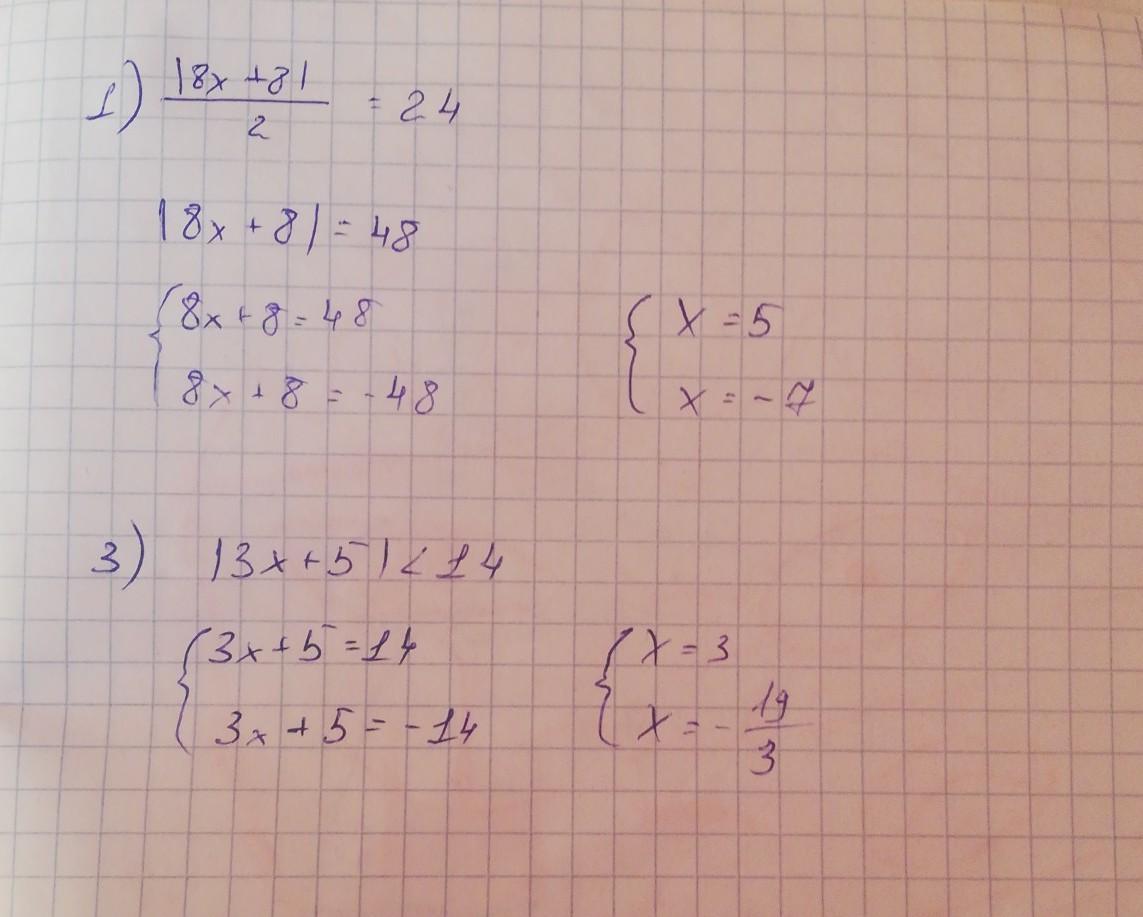 1) |8x +8| / 2 = 24
|8x + 8| = 48
{ 8x + 8 = 48 { x = 5
8x + 8 = - 48 x = - 7
3) |3x + 5| < 14
{ 3x + 5 = 14 { x = 3
3x + 5 = - 14 x = - 19/3